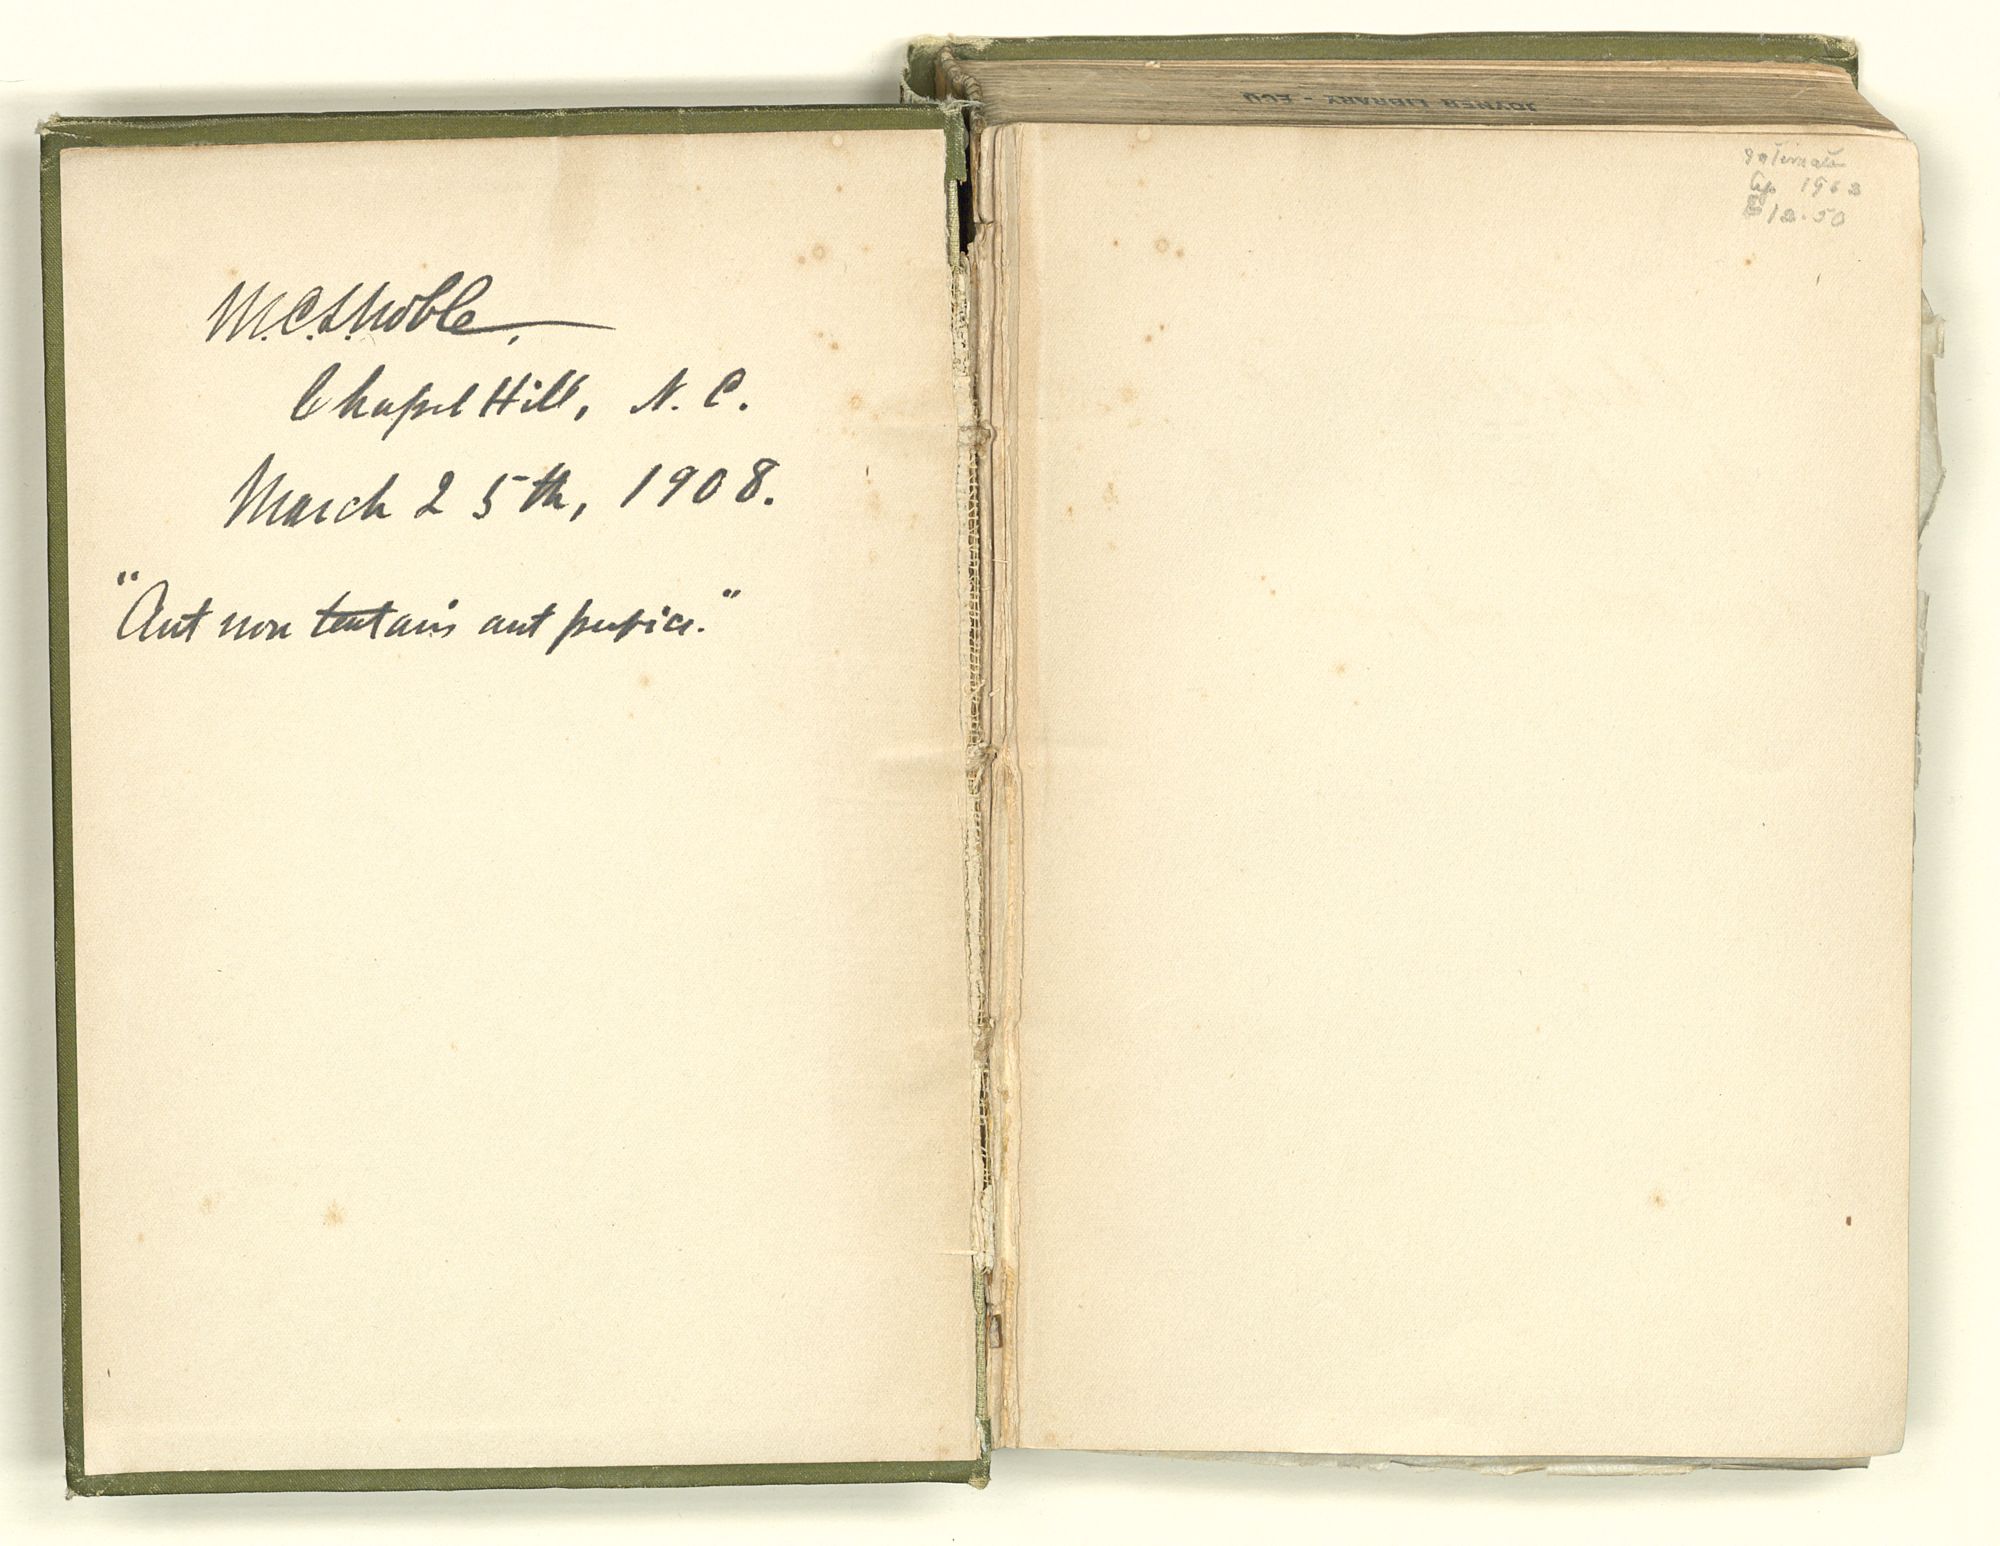 M.C.S. Noble,
Chapel Hill, N. C.
March 25th, 1908.
"Aut non tentaris aut perfice."
JOYNER LIBRARY - ECU
12.50